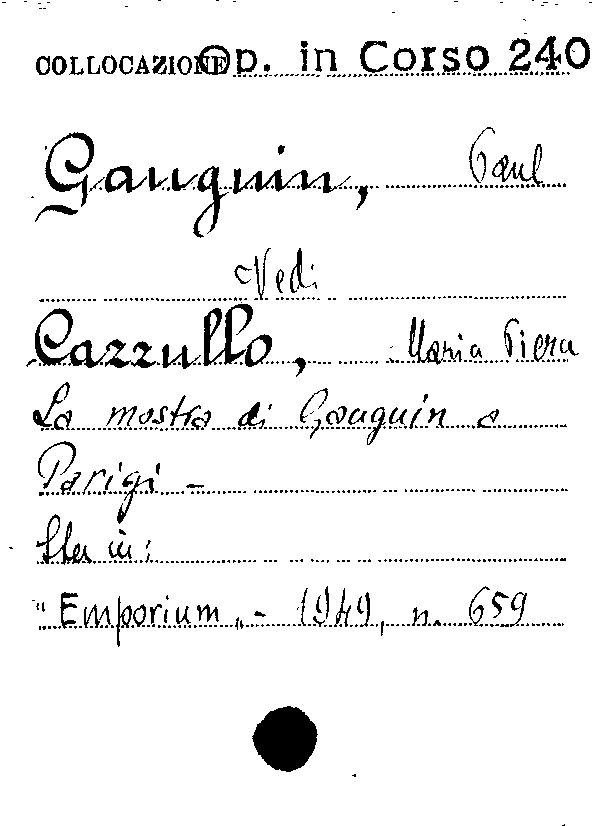 COLLOCAZIONE Op. in Corso 240
Gauguin, Paul
Vedi
Cazzullo, Maria Piera
La mostra di Gauguin a
Parigi -
Sta in:
"Emporium" - 1949, n. 659